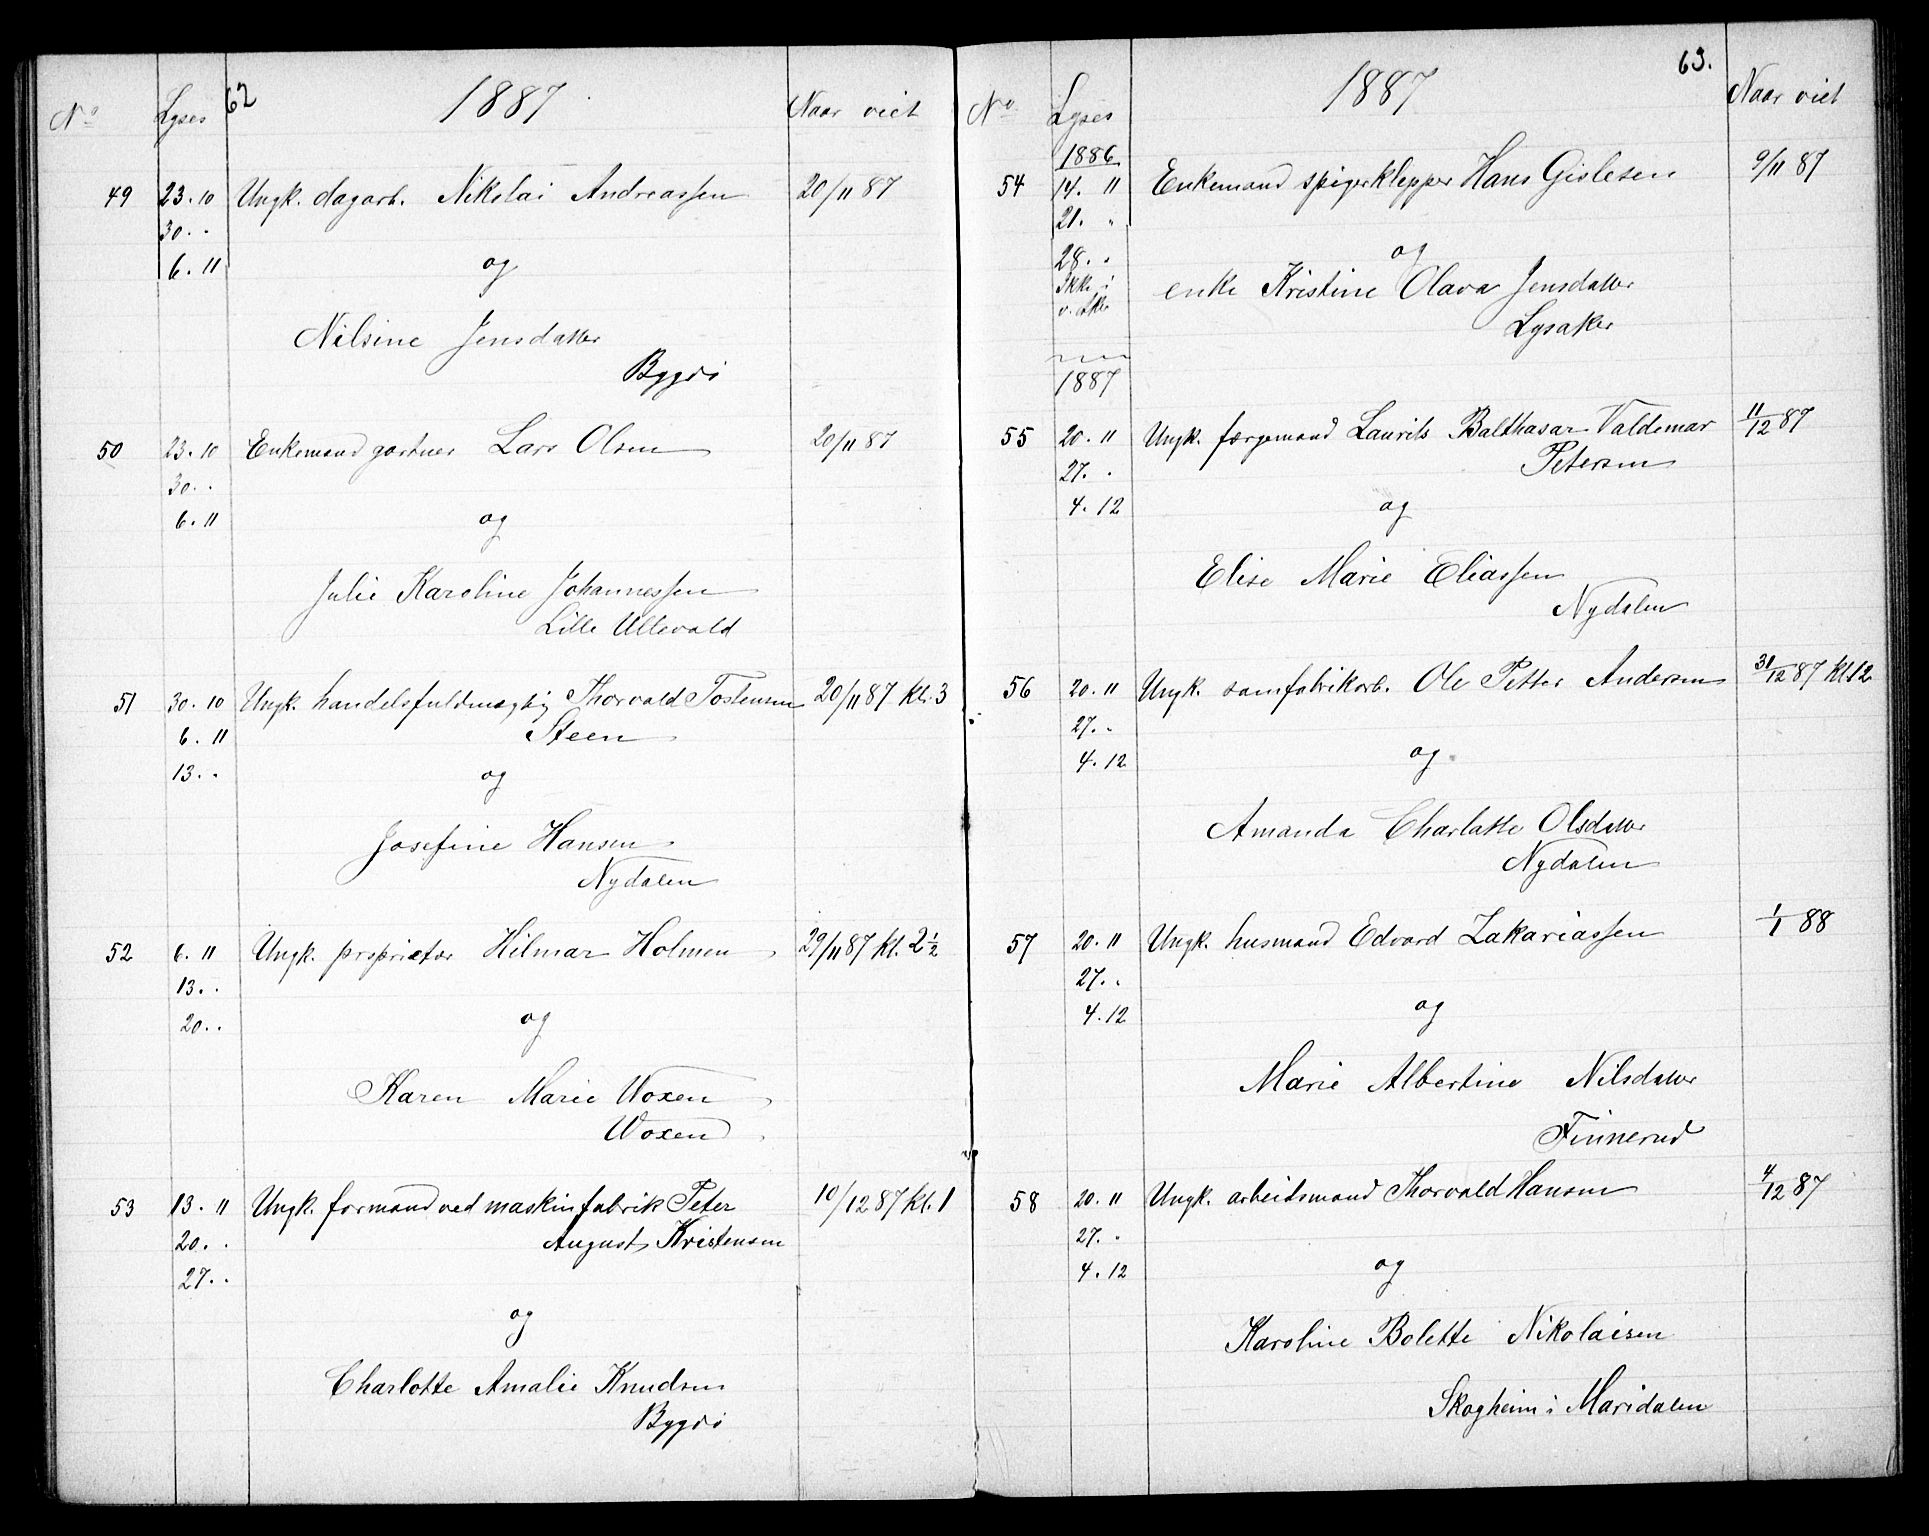 62
1887
No Lyses Naar viet
49 23.10 Ungk. dagarb. Nikolai Andreassen 20/11 87
30. "
6. 11 og
Nilsine Jensdatter
Bygdö
50 23.10 Enkemand gartner Lars Olsen 20/11 87
30. "
6. 11 og
Julie Karoline Johannessen
Lille Ullevold
51 30.10 Ungk. handelsfuldmægtig Thorvald Tostensen 20/11 87 kl. 3
6. 11 Steen
13. " og
Josefine Hansen
Nydalen
52 6. 11 Ungk. proprietær Hilmar Holmen 29/11 87 kl. 2 1/2
13. "
20. " og
Karen Marie Woxen
Woxen
53 13. 11 Ungk. formand ved maskinfabrik Peter 10/12 87 kl. 1
20. " August Kristensen
27. "
og
Charlotte Amalie Knudsen
Bygdö
63.
1887
No Lyses Naar viet
1886
54 14. 11 Enkemand spigerklepper Hans Gislesen 9/11 87
21. "
28. " og
Ikke i enke Kristine Olava Jensdatter
v. Aker Lysaker
1887
55 20. 11 Ungk. færgemand Laurits Balthasar Valdemar 11/12 87
27. " Petersen
4. 12 og
Elise Marie Eliassen
Nydalen
56 20. 11 Ungk. sømfabrikarb. Ole Petter Andersen 31/12 87 kl. 12
27. "
4. 12 og
Amanda Charlotte Olsdatter
Nydalen
57 20. 11 Ungk. husmand Edvard Zakariassen 1/1 88
27. "
4. 12 og
Marie Albertine Nilsdatter
Finnerud
58 20. 11 Ungk. arbeidsmand Thorvald Hansen 4/12 87
27. "
4. 12 og
Karoline Bolette Nikolaisen
Skogheim i Maridalen